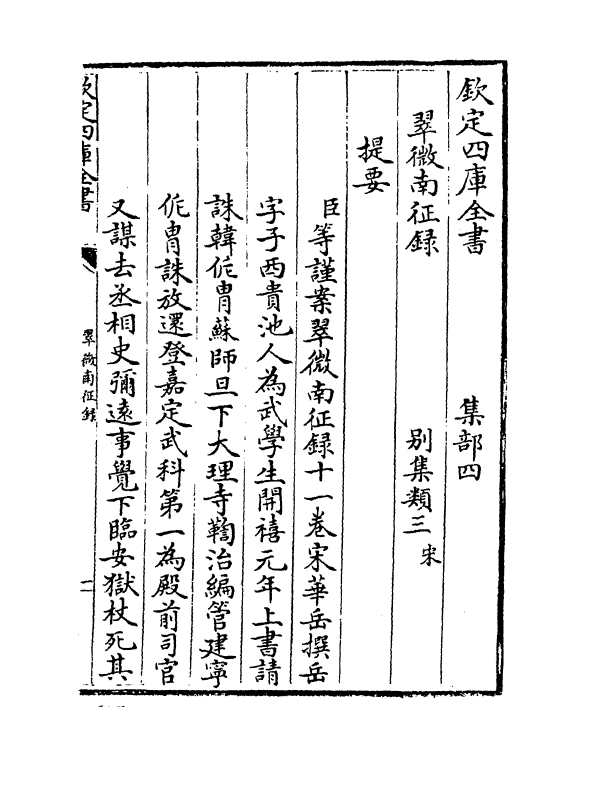 欽定四庫全書　集部四
翠微南征録　別集類三宋
提要
臣等謹案翠微南征録十一卷宋華岳撰岳
字子西貴池人為武學生開禧元年上書請
誅韓侂胄蘇師旦下大理寺鞫治編管建寧
侂胄誅放還登嘉定武科第一為殿前司官
又謀去丞相史彌遠事覺下臨安獄杖死其
欽定四庫全書
翠微南征錄